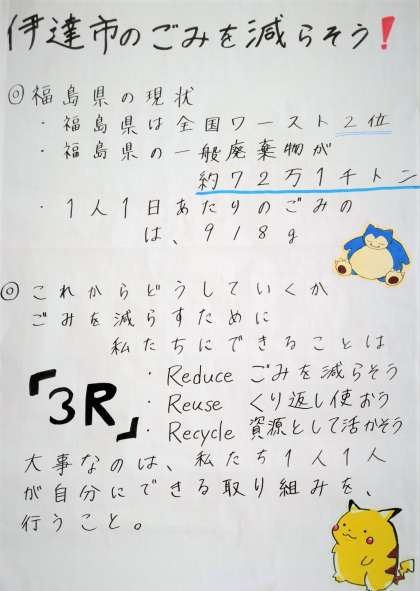 伊達市のごみを減らそう!
◎福島県の現状
・福島県は全国ワースト2位
・福島県の一般廃棄物が
約72万1千トン
・1人1日あたりのごみの
は、918g
◎これからどうしていくか
ごみを減らすために
私たちにできることは
「3R」
・Reduce ごみを減らそう
・Reuse くり返し使おう
・Recycle 資源として活かそう
大事なのは、私たち1人1人
が自分にできる取り組みを、
行うこと。